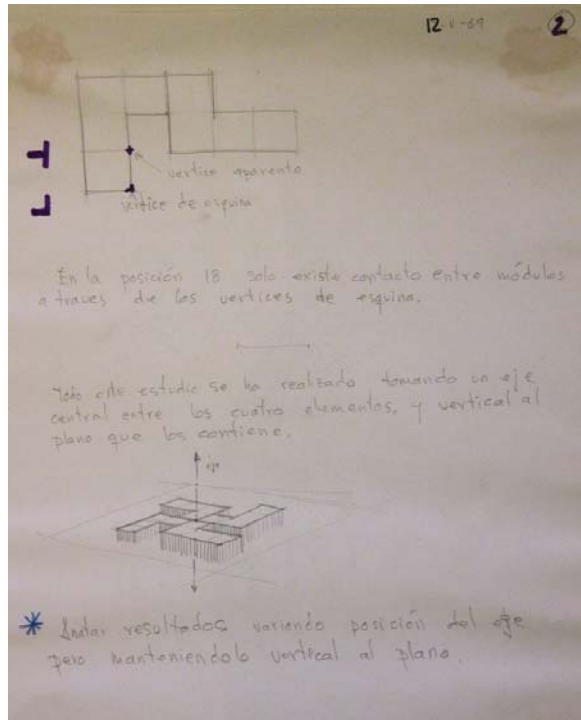 12-V-69
2
vertice aparente
vértice de esquina
En la posición 18 solo existe contacto entre módulos
a traves de los vertices de esquina.
Todo este estudio se ha realizado tomando un eje
central entre los cuatro elementos, y vertical al
plano que los contiene.
eje
* Anotar resultados variendo posición del eje
pero manteniendolo vertical al plano.